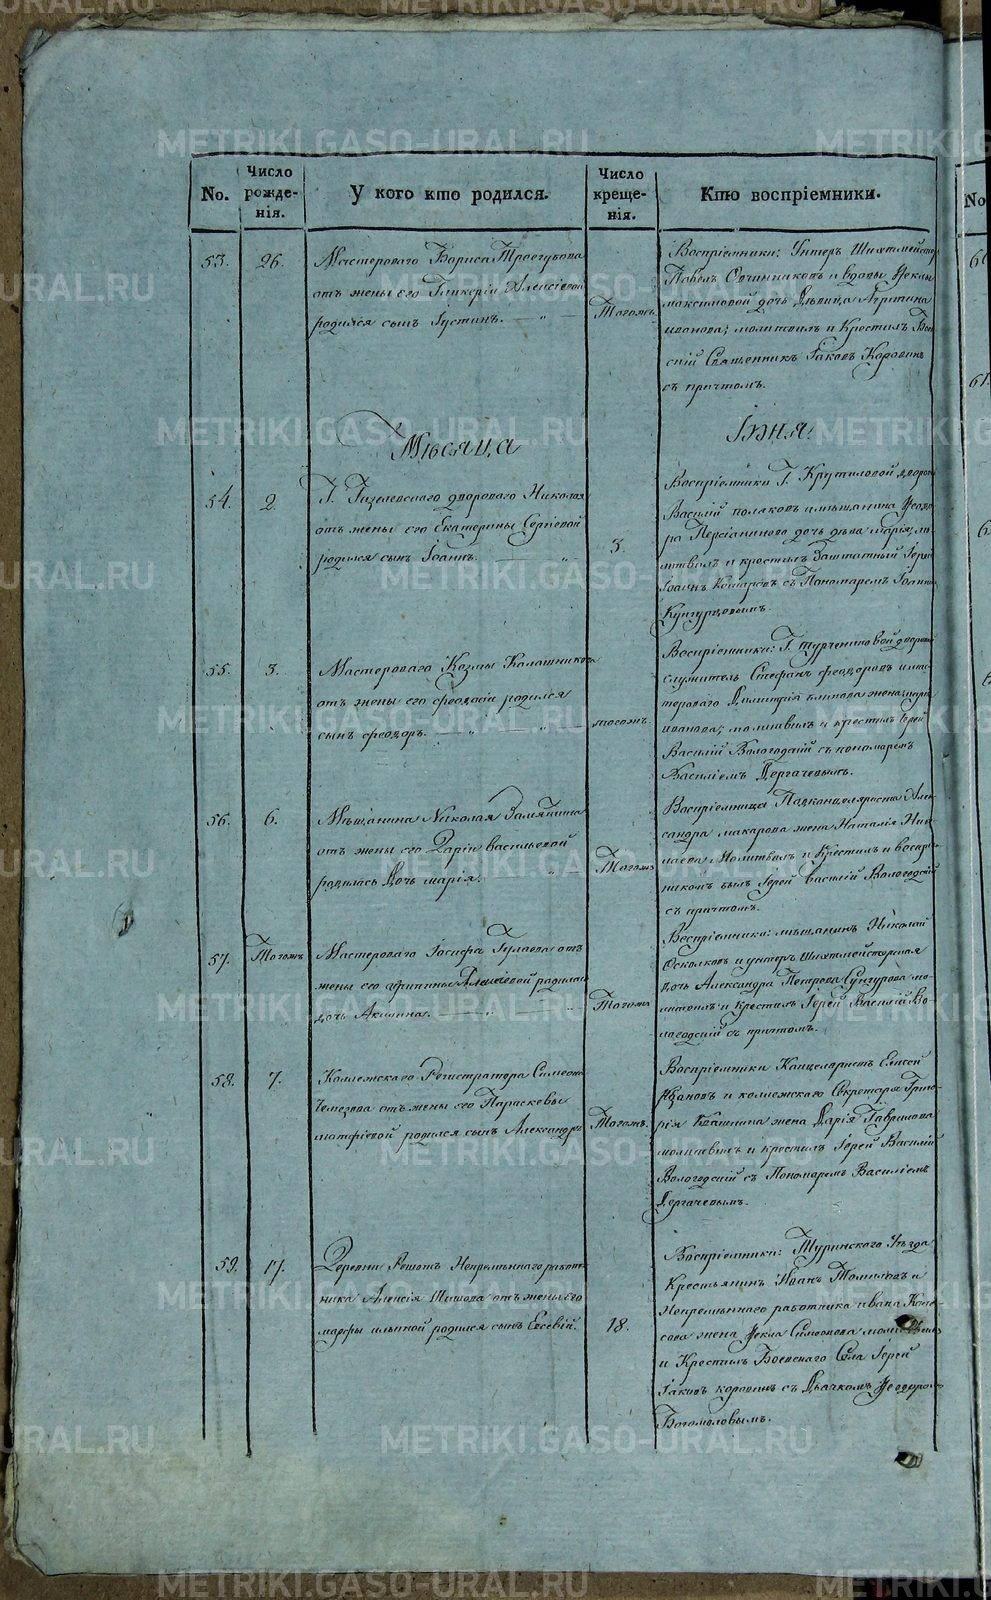 METRIKI.GASO-URAL.RU
No.
Число рожде-нія.
У кого кто родился.
Число креще-нія.
Кто воспріемники.
53.
26.
Мастероваго Бориса
отъ жены его Гликеріи Алексіевой
родился сынъ Іустинъ.
Тогожъ
Воспріемники: Унтеръ Шихтмейстеръ
Павелъ Овчинниковъ и вдовы Ѳеклы
Максимовой дочь дѣвица
Иванова; молитвилъ и Крестилъ
Священникъ Іаковъ Коровинъ
съ причтомъ.
Мѣсяца
Іюня:
54.
2.
Г. дворового Николая
отъ жены его Екатерины Сергіевой
родился сынъ Іоаннъ.
3.
Воспріемники Г.
Василій Поляковъ и мѣщанина
дочь дѣва Марія; мо-
литвилъ и крестилъ Заштатный Іерей
Іоаннъ съ Пономаремъ
55.
3.
Мастероваго Козмы Калашникова
отъ жены его Ѳеодосіи родился
сынъ Ѳеодоръ.
тогожъ
Воспріемники: Г. Турчениновой
служитель Стефанъ Ѳеодоровъ и мас-
тероваго Димитрія жена
Иванова; молитвилъ и крестилъ Іерей
Василій Вологодскій съ пономаремъ
Василіемъ Дергачевымъ.
56.
6.
Мѣщанина Николая Замятина
отъ жены его Даріи Васильевой
родилась Дочь Марія.
Тогожъ
Воспріемница Подканцеляриста Алек-
сандра Макарова жена Наталія Ник-
лаева Молитвилъ и Крестилъ и воспріе-
никомъ былъ Іерей Василій Вологодскій
съ причтомъ.
57.
Тогожъ
Мастероваго Іосифа отъ
жены его родилась
дочь Акилина.
Тогожъ
Воспріемники: мѣщанинъ Николай
Осколковъ и унтеръ Шихтмейстерская
дочь Александра Петрова Сунгурова мо-
литвилъ и крестилъ Іерей Василій Во-
логодскій съ причтомъ.
58.
7.
Коллежскаго Регистратора Симеона
Чемезова отъ жены его Параскевы
Матфіевой родился сынъ Александръ
Тогожъ.
Воспріемники Канцеляристъ Елисей
и коллежскаго Секретаря Григо-
рія Квашнина жена Дарія Гаврилова
молитвилъ и крестилъ Іерей Василій
Вологодскій съ Пономаремъ Василіемъ
Дергачевымъ.
59.
17.
Деревни Решотъ Непремѣннаго работ-
ника Алексія Шишова отъ жены его
Марфы Ильиной родился сынъ Евсевій.
18.
Воспріемники: Туринскаго Уѣзда
Крестьянинъ Иванъ Томиловъ и
Непремѣннаго работника Ивана
жена Ѳекла Симеонова
и Крестилъ Боевскаго Села Іерей
Іаковъ Коровинъ съ Дьячкомъ Ѳеодоромъ
Богомоловымъ.